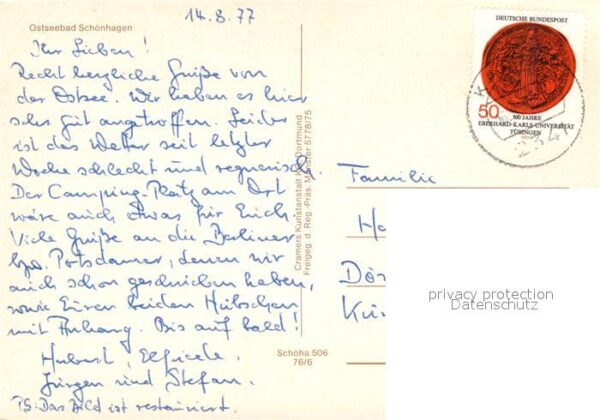 14.8.77
Ostseebad Schönhagen
Ihr Lieben!
Recht herzliche Grüße von
der Ostsee. Wir haben es hier
sehr gut angetroffen. Leider
ist das Wetter seit letzter
Woche schlecht und regnerisch.
Der Camping-Platz am Ort
wäre auch etwas für Euch.
Viele Grüße an die Berliner
bzw. Potsdamer, denen wir
auch schon geschrieben haben,
sowie Euren beiden Hübschen
mit Anhang. Bis auf bald!
Hubert,
Jürgen und Stefan.
PS: Das Bild ist restauriert.
Cramers Kunstanstalt KG, Dortmund
Freigeg. d. Reg.-Präs. Münster 5778/75
Schöha 506
76/6
DEUTSCHE BUNDESPOST
50
500 JAHRE
EBERHARD-KARLS-UNIVERSITÄT
TÜBINGEN
234
Familie
privacy protection
Datenschutz